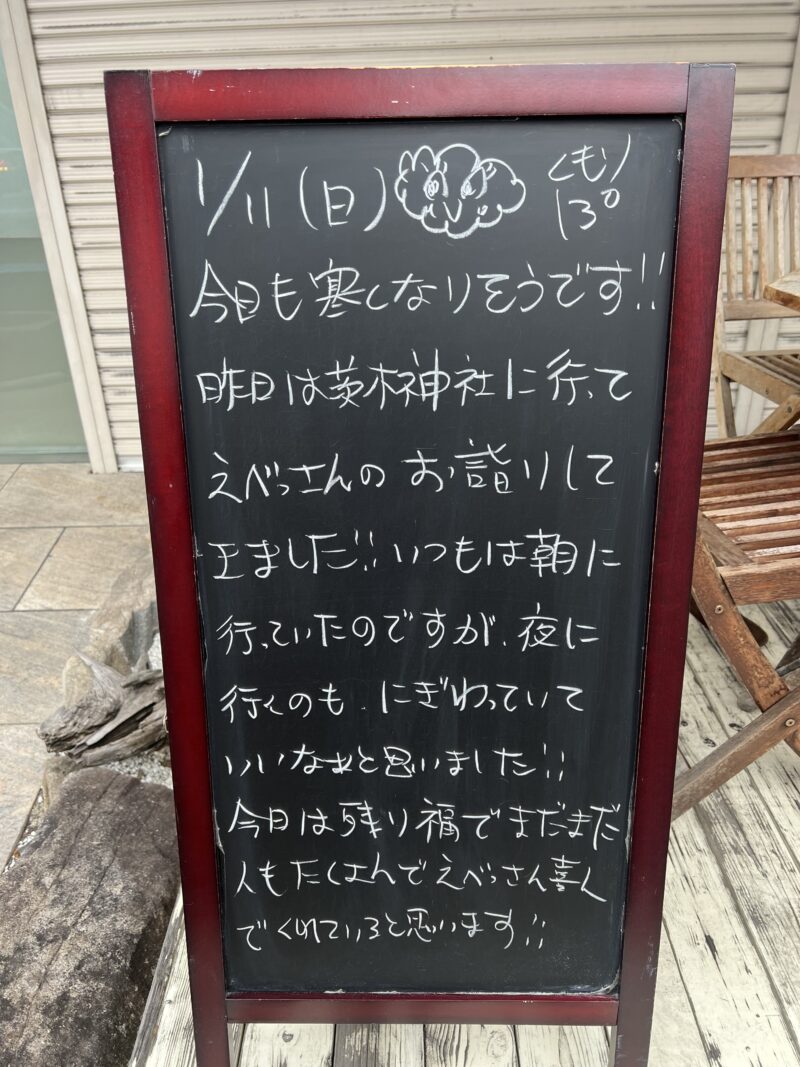 1/11(日) くもり
13°
今日も寒くなりそうです!!
昨日は茨木神社に行って
えべっさんのお詣りして
きました!! いつもは朝に
行っていたのですが、夜に
行くのも、にぎわっていて
いいなぁと思いました!!
今日は残り福でまだまだ
人もたくさんでえべっさん喜ん
でくれていると思います!!